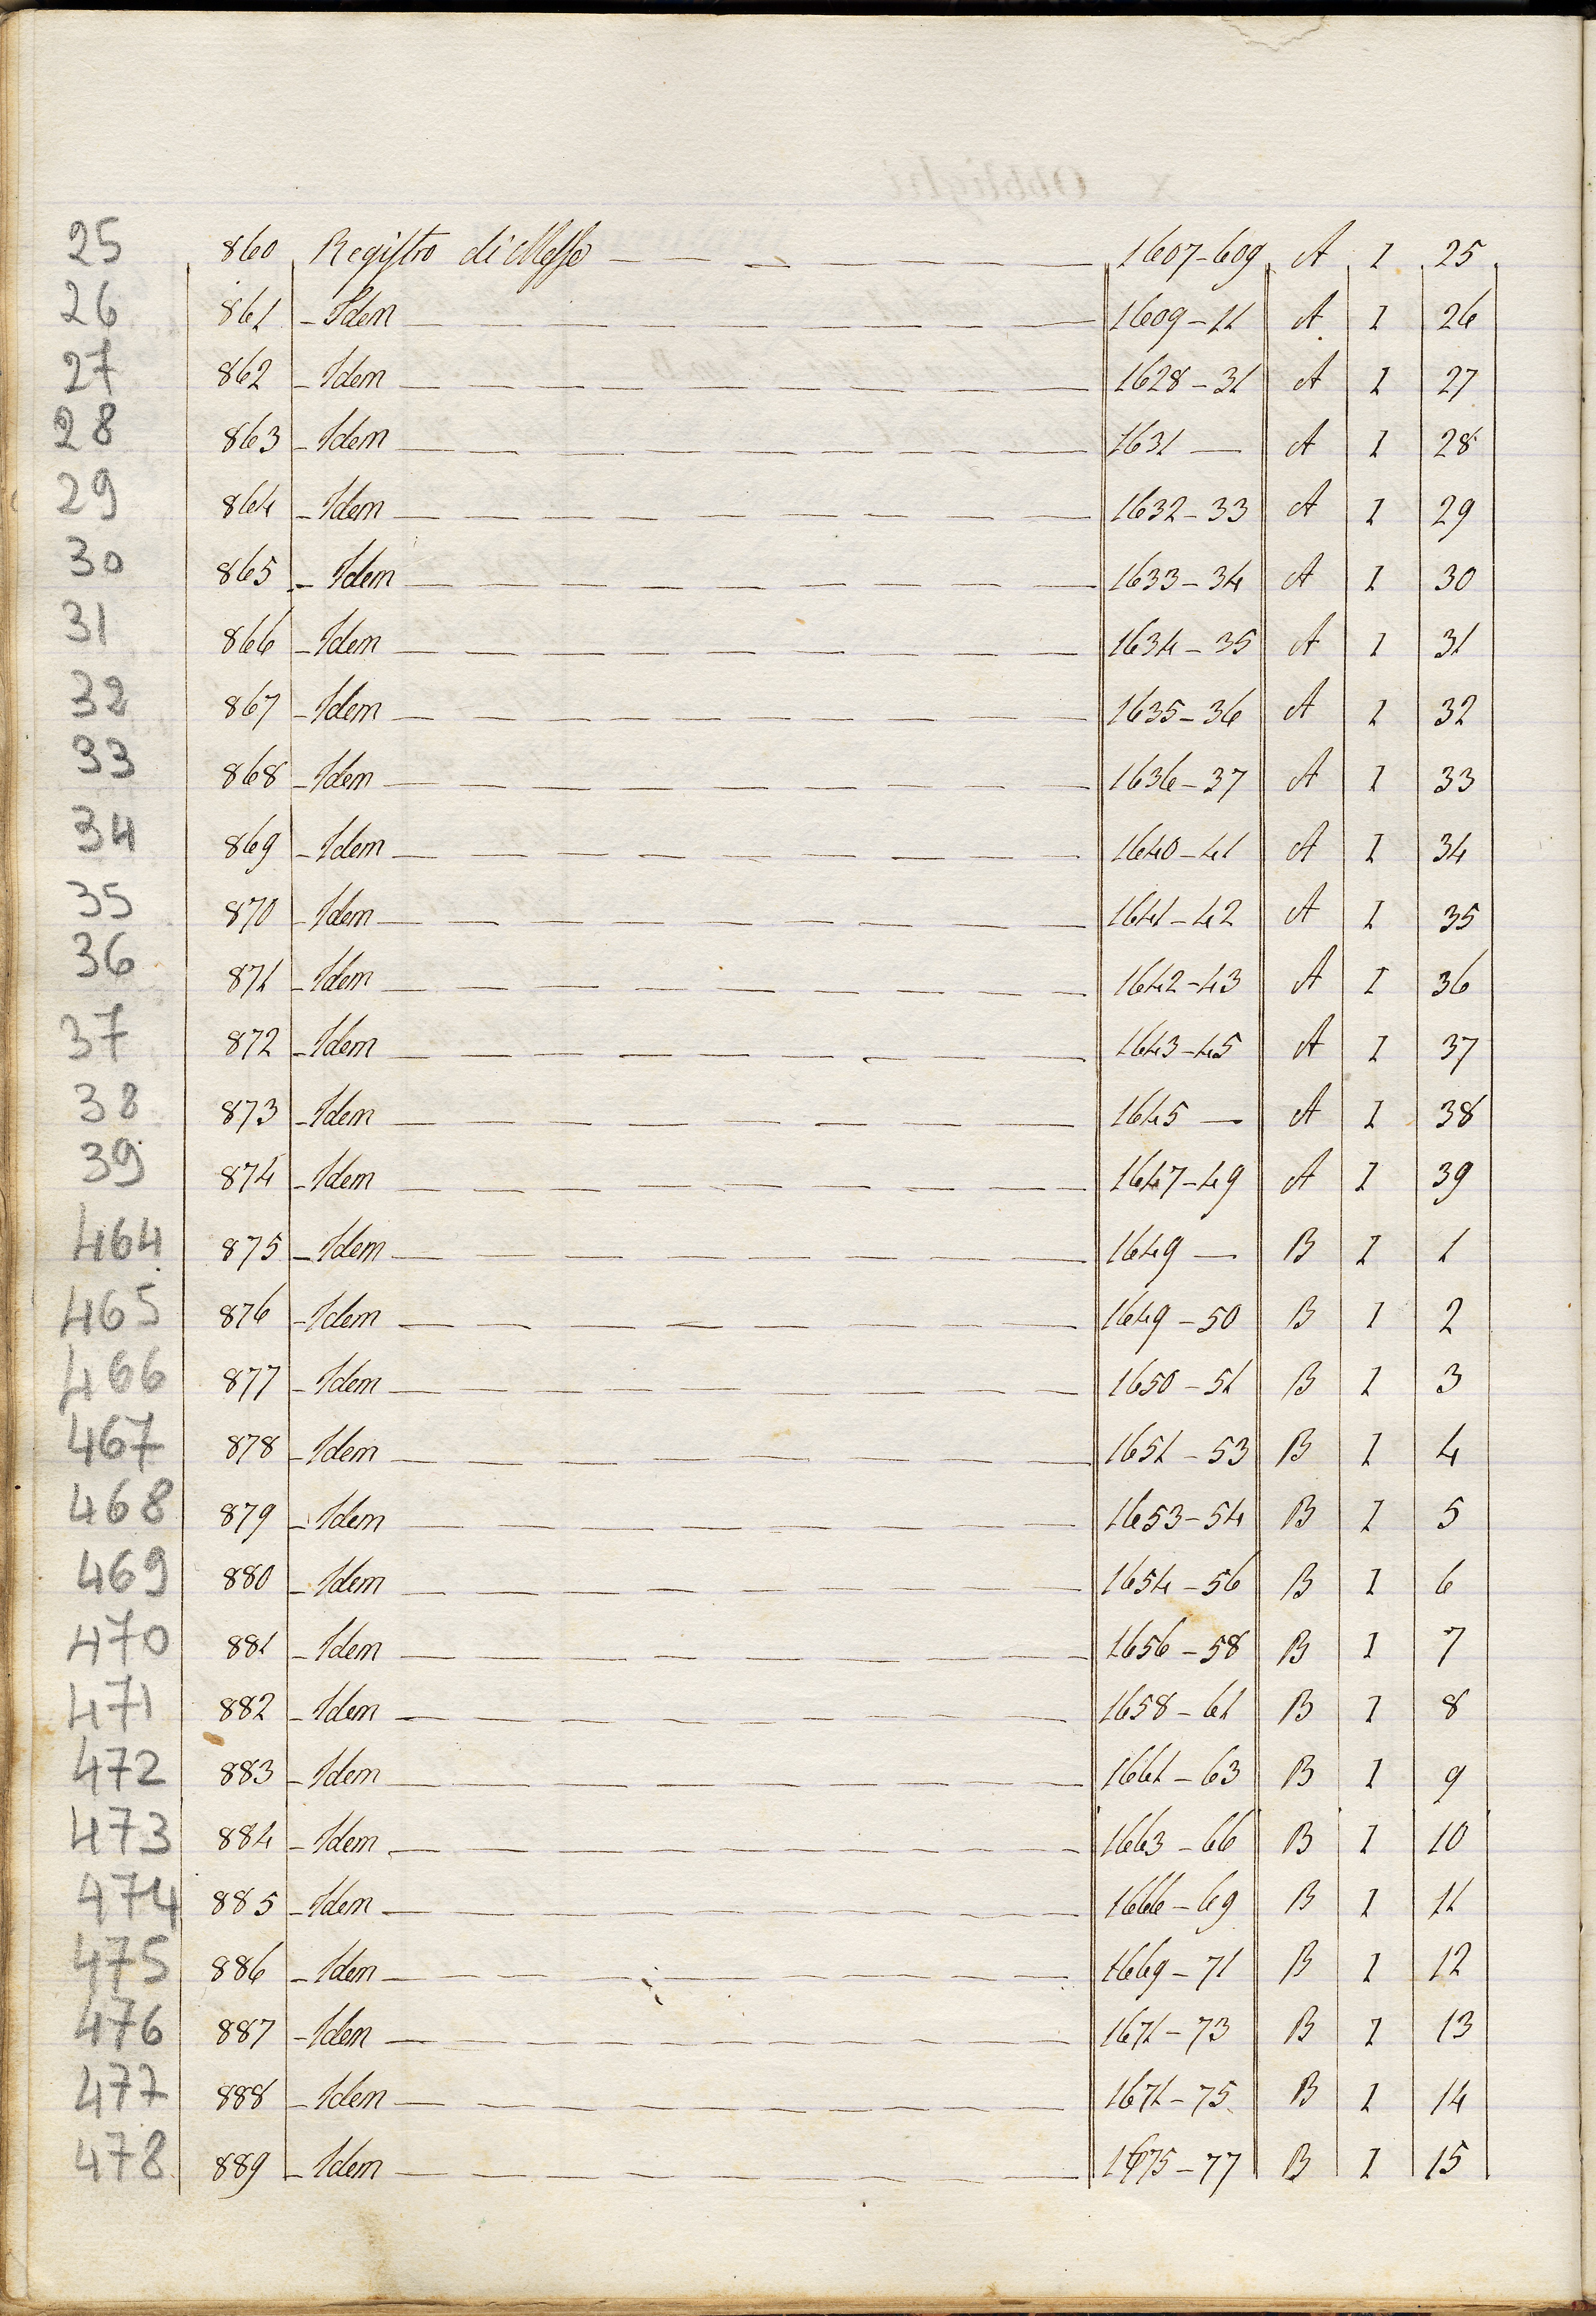 25 860 Registro di Messe 1607-609 A I 25
26 861 - Idem 1609-11 A I 26
27 862 - Idem 1628-31 A I 27
28 863 - Idem 1631 — A I 28
29 864 - Idem 1632-33 A I 29
30 865 - Idem 1633-34 A I 30
31 866 - Idem 1634-35 A I 31
32 867 - Idem 1635-36 A I 32
33 868 - Idem 1636-37 A I 33
34 869 - Idem 1640-41 A I 34
35 870 - Idem 1641-42 A I 35
36 871 - Idem 1642-43 A I 36
37 872 - Idem 1643-45 A I 37
38 873 - Idem 1645 — A I 38
39 874 - Idem 1647-49 A I 39
464 875 - Idem 1649 — B I 1
465 876 - Idem 1649-50 B I 2
466 877 - Idem 1650-51 B I 3
467 878 - Idem 1651-53 B I 4
468 879 - Idem 1653-54 B I 5
469 880 - Idem 1654-56 B I 6
470 881 - Idem 1656-58 B I 7
471 882 - Idem 1658-61 B I 8
472 883 - Idem 1661-63 B I 9
473 884 - Idem 1663-66 B I 10
474 885 - Idem 1666-69 B I 11
475 886 - Idem 1669-71 B I 12
476 887 - Idem 1671-73 B I 13
477 888 - Idem 1671-75 B I 14
478 889 - Idem 1675-77 B I 15